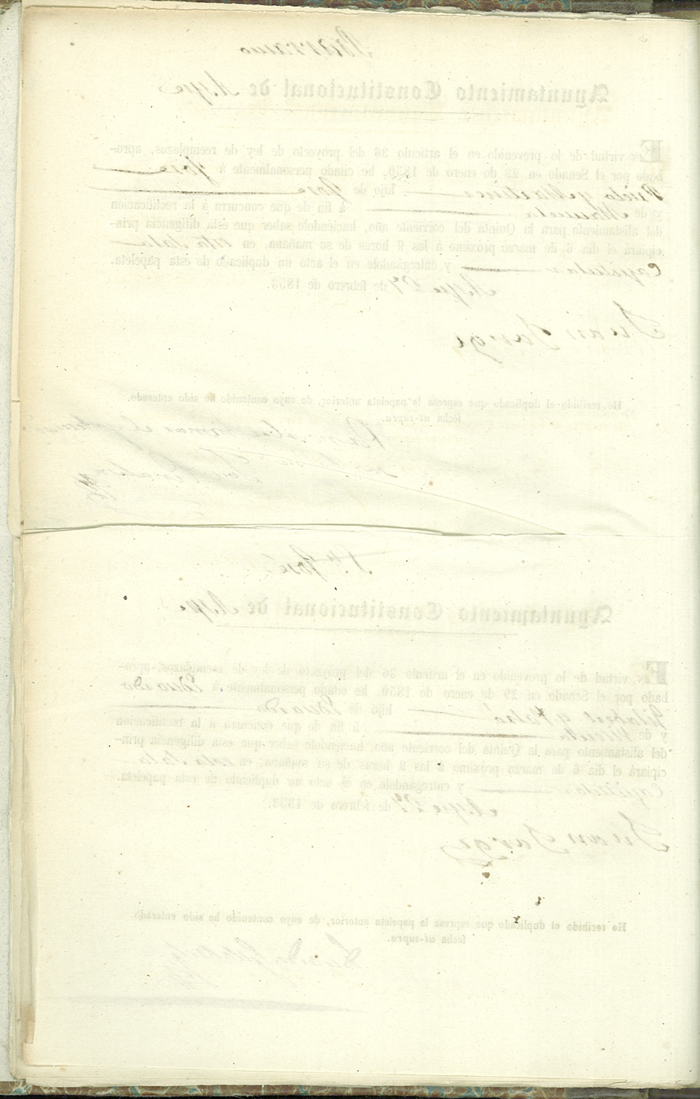 Ayuntamiento Constitucional de Aspe
En virtud de lo prevenido en el artículo 36 del proyecto de ley de reemplazos, apro-
bado por el Senado en 29 de enero de 1850, he citado personalmente á José
Prieto y Martinez hijo de José
y de Manuela á fin de que concurra á la rectificacion
del alistamiento para la Quinta del corriente año, haciéndole saber que esta diligencia prin-
cipiará el dia 6 de marzo próximo á las 9 horas de su mañana, en esta Sala
Capitular y entregándole en el acto un duplicado de esta papeleta.
Aspe 27 de febrero de 1853.
Juan
He recibido el duplicado que espresa la papeleta anterior, de cuyo contenido he sido enterado.
fecha ut-supra.
Ayuntamiento Constitucional de Aspe
En virtud de lo prevenido en el artículo 36 del proyecto de ley de reemplazos, apro-
bado por el Senado en 29 de enero de 1850, he citado personalmente á Eduardo
Gilabert y hijo de Eduardo
y de á fin de que concurra á la rectificacion
del alistamiento para la Quinta del corriente año, haciéndole saber que esta diligencia prin-
cipiará el dia 6 de marzo próximo á las 9 horas de su mañana, en esta Sala
Capitular y entregándole en el acto un duplicado de esta papeleta.
Aspe 27 de febrero de 1853.
Juan
He recibido el duplicado que espresa la papeleta anterior, de cuyo contenido he sido enterado.
fecha ut-supra.